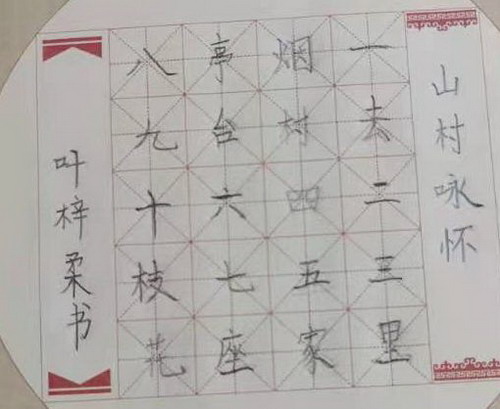 山村咏怀
一去二三里
烟村四五家
亭台六七座
八九十枝花
叶梓柔书